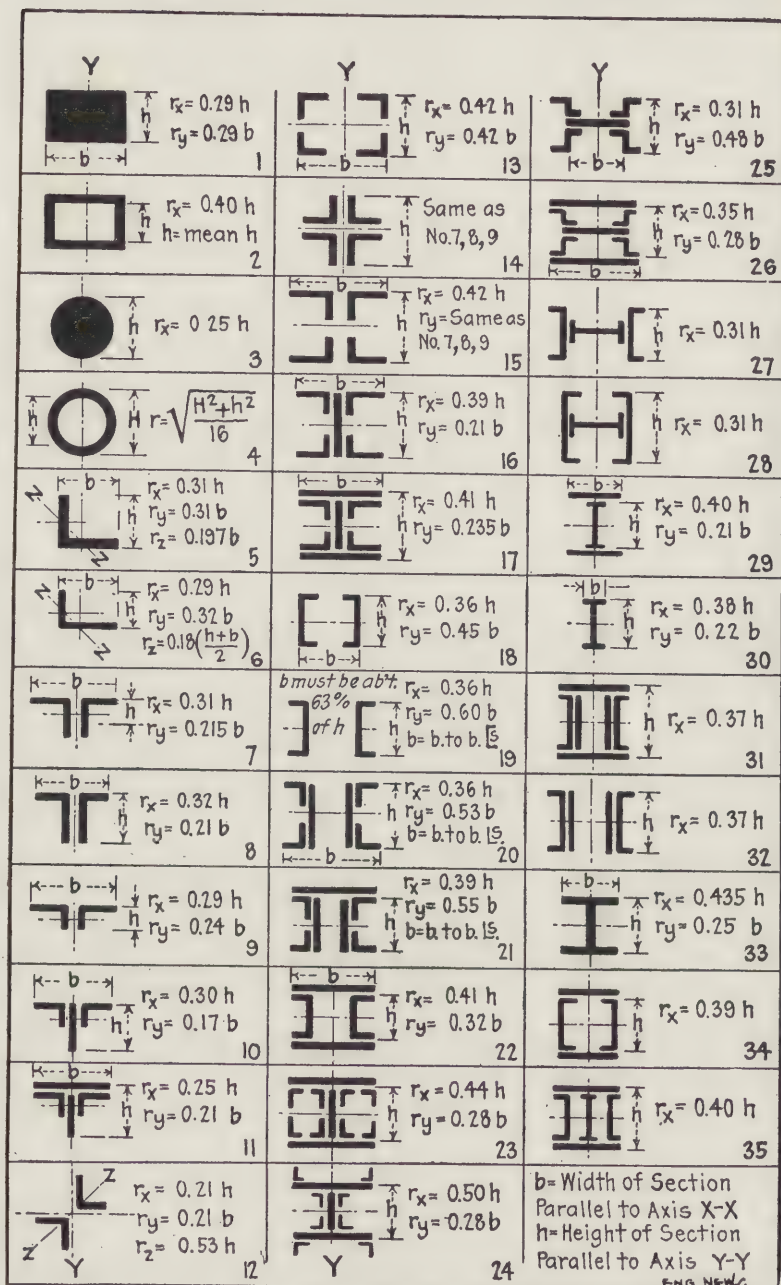 Y
b
h
rx = 0.29 h
ry = 0.29 b
1
h
rx = 0.40 h
h = mean h
2
h
rx = 0 25 h
3
h
H
r = √ H²+h² / 16
4
b
h
Z
Z
rx = 0.31 h
ry = 0.31 b
rz = 0.197 b
5
b
h
Z
Z
rx = 0.29 h
ry = 0.32 b
rz = 0.18 (h+b / 2)
6
b
h
rx = 0.31 h
ry = 0.215 b
7
b
h
rx = 0.32 h
ry = 0.21 b
8
b
h
rx = 0.29 h
ry = 0.24 b
9
b
h
rx = 0.30 h
ry = 0.17 b
10
b
h
rx = 0.25 h
ry = 0.21 b
11
Z
Z
Y
rx = 0.21 h
ry = 0.21 b
rz = 0.53 h
12
Y
h
b
rx = 0.42 h
ry = 0.42 b
13
h
Same as
No. 7, 8, 9
14
b
h
rx = 0.42 h
ry = Same as
No. 7, 8, 9
15
b
h
rx = 0.39 h
ry = 0.21 b
16
b
h
rx = 0.41 h
ry = 0.235 b
17
h
b
rx = 0.36 h
ry = 0.45 b
18
b must be ab't.
63%
of h
h
rx = 0.36 h
ry = 0.60 b
b = b. to b. [s
19
h
b
rx = 0.36 h
ry = 0.53 b
b = b. to b. Ls.
20
h
rx = 0.39 h
ry = 0.55 b
b = b. to b. Ls.
21
b
h
rx = 0.41 h
ry = 0.32 b
22
h
rx = 0.44 h
ry = 0.28 b
23
h
Y
rx = 0.50 h
ry = 0.28 b
24
Y
h
b
rx = 0.31 h
ry = 0.48 b
25
h
b
rx = 0.35 h
ry = 0.28 b
26
h
rx = 0.31 h
27
h
rx = 0.31 h
28
b
h
rx = 0.40 h
ry = 0.21 b
29
b
h
rx = 0.38 h
ry = 0.22 b
30
h
rx = 0.37 h
31
h
rx = 0.37 h
32
b
h
rx = 0.435 h
ry = 0.25 b
33
h
rx = 0.39 h
34
h
rx = 0.40 h
35
b = Width of Section
Parallel to Axis X-X
h = Height of Section
Parallel to Axis Y-Y
ENG. NEWS